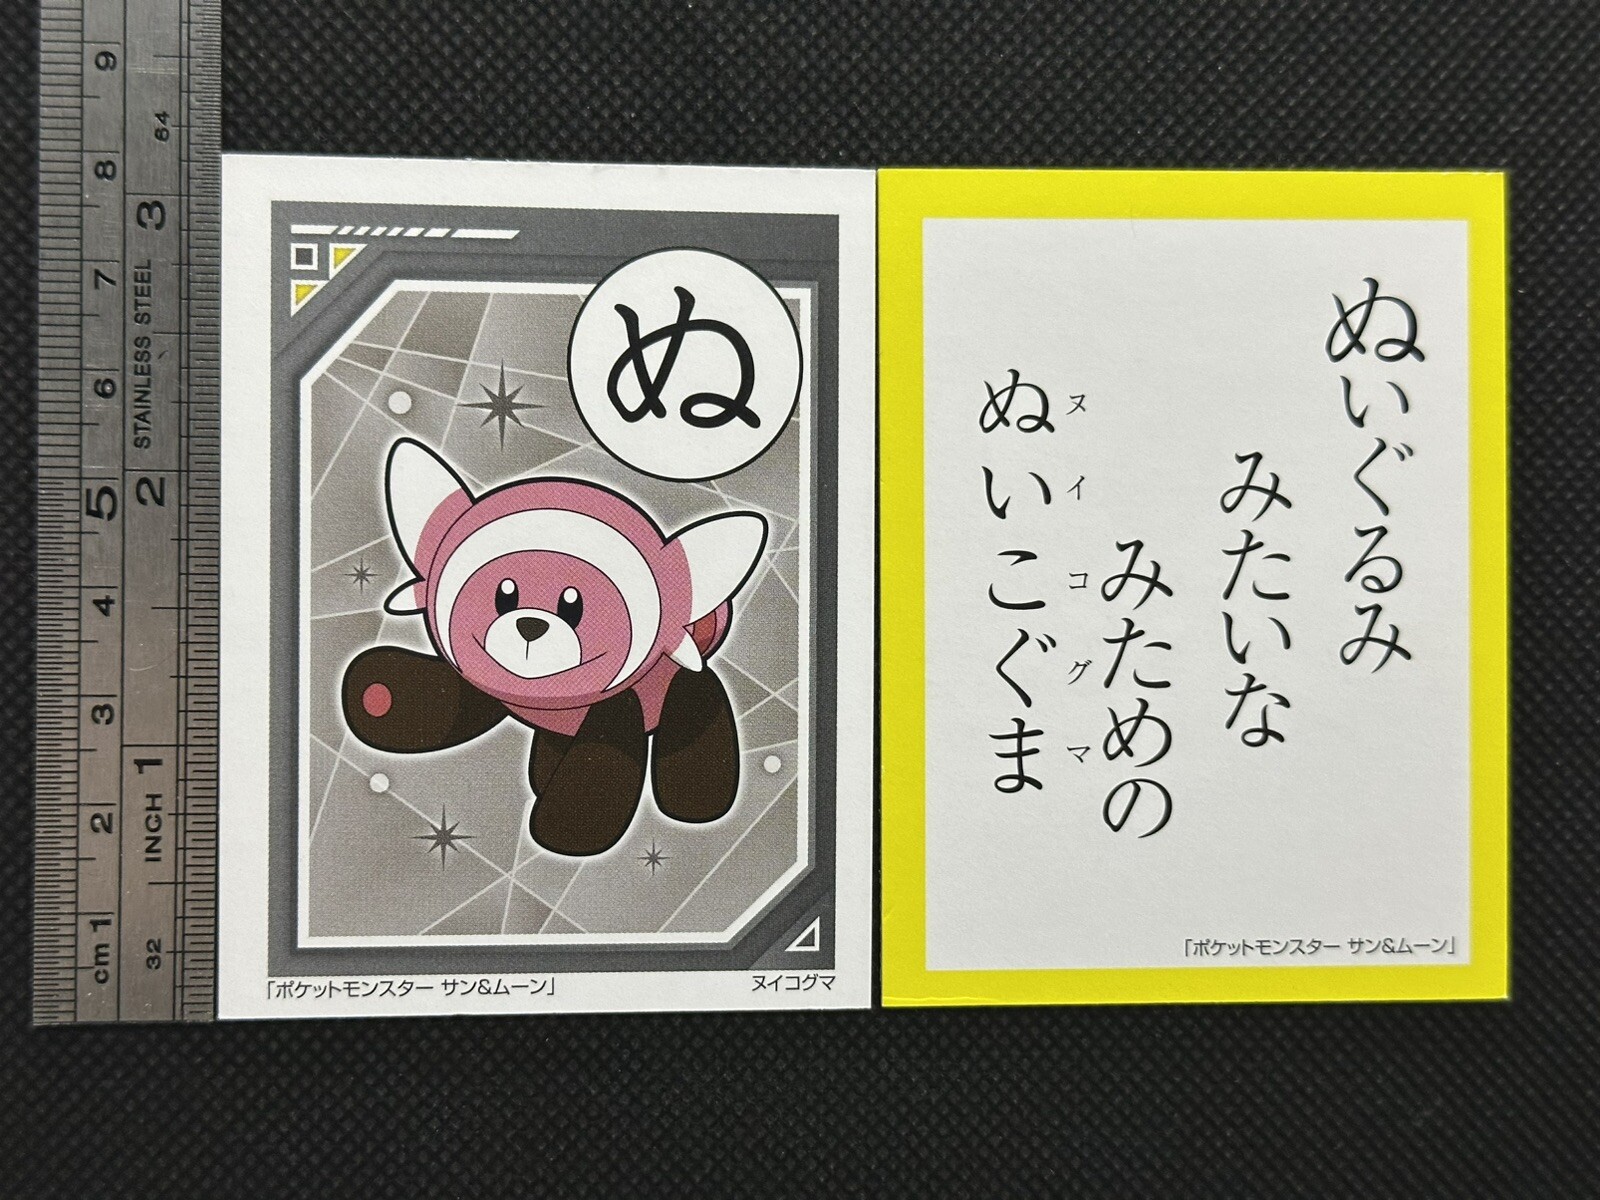 9
8
7
6
5
4
3
2
cm 1
64
3
STAINLESS STEEL
2
INCH 1
32
ぬ
「ポケットモンスター サン&ムーン」
ヌイコグマ
ぬいぐるみ
みたいな
みための
ぬいこぐま
ヌイコグマ
「ポケットモンスター サン&ムーン」